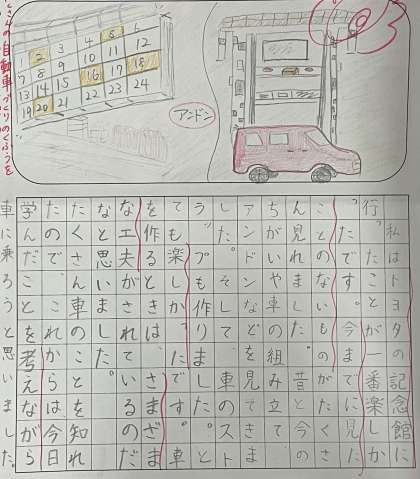 自動車づくりのくふうを
1 2 3 4 5 6
7 8 9 10 11 12
13 14 15 16 17 18
19 20 21 22 23 24
アンドン
私はトヨタの記念館に
行ったことが一番楽しか
ったです。今までに見た
ことのないものがたくさ
ん見れました。昔と今の
ちがいや車の組み立て
アンドンなどを見ま
した。そして車のスト
ラップも作りました。と
ても楽しかったです。車
を作るときは、さまざま
な工夫がされているのだ
なと思いました。
たくさん車のことを知れ
たのでこれからは今日
学んだことを考えながら
車に乗ろうと思いました。